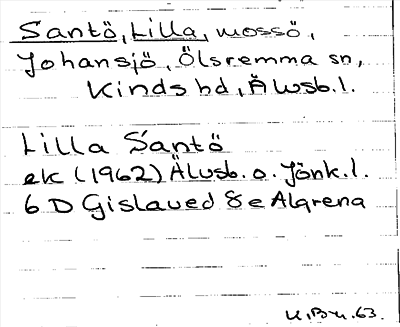 Santö, Lilla, mossö,
Johansjö, Ölsremma sn,
Kinds hd, Älvsb.l.
Lilla Santö
ek (1962) Älvsb. o. Jönk.l.
6 D Gislaved 8e Algrena
K.Bm.63.